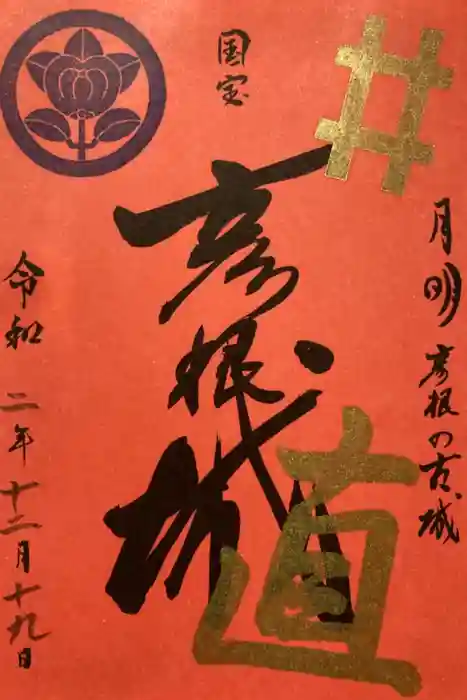 国宝
彦根城
井
直
月明彦根の古城
令和二年十二月十九日